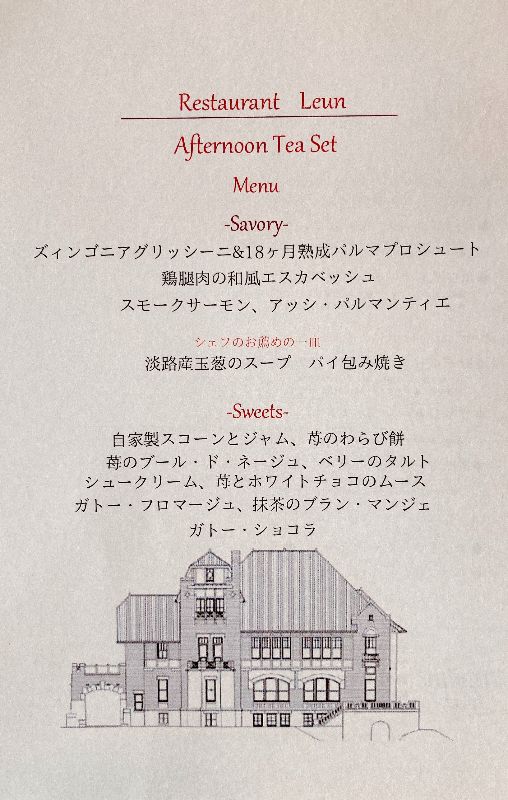 Restaurant Leun
Afternoon Tea Set
Menu
-Savory-
ズィンゴニアグリッシーニ&18ヶ月熟成パルマプロシュート
鶏腿肉の和風エスカベッシュ
スモークサーモン、アッシ・パルマンティエ
シェフのお薦めの一皿
淡路産玉葱のスープ パイ包み焼き
-Sweets-
自家製スコーンとジャム、苺のわらび餅
苺のブール・ド・ネージュ、ベリーのタルト
シュークリーム、苺とホワイトチョコのムース
ガトー・フロマージュ、抹茶のブラン・マンジェ
ガトー・ショコラ